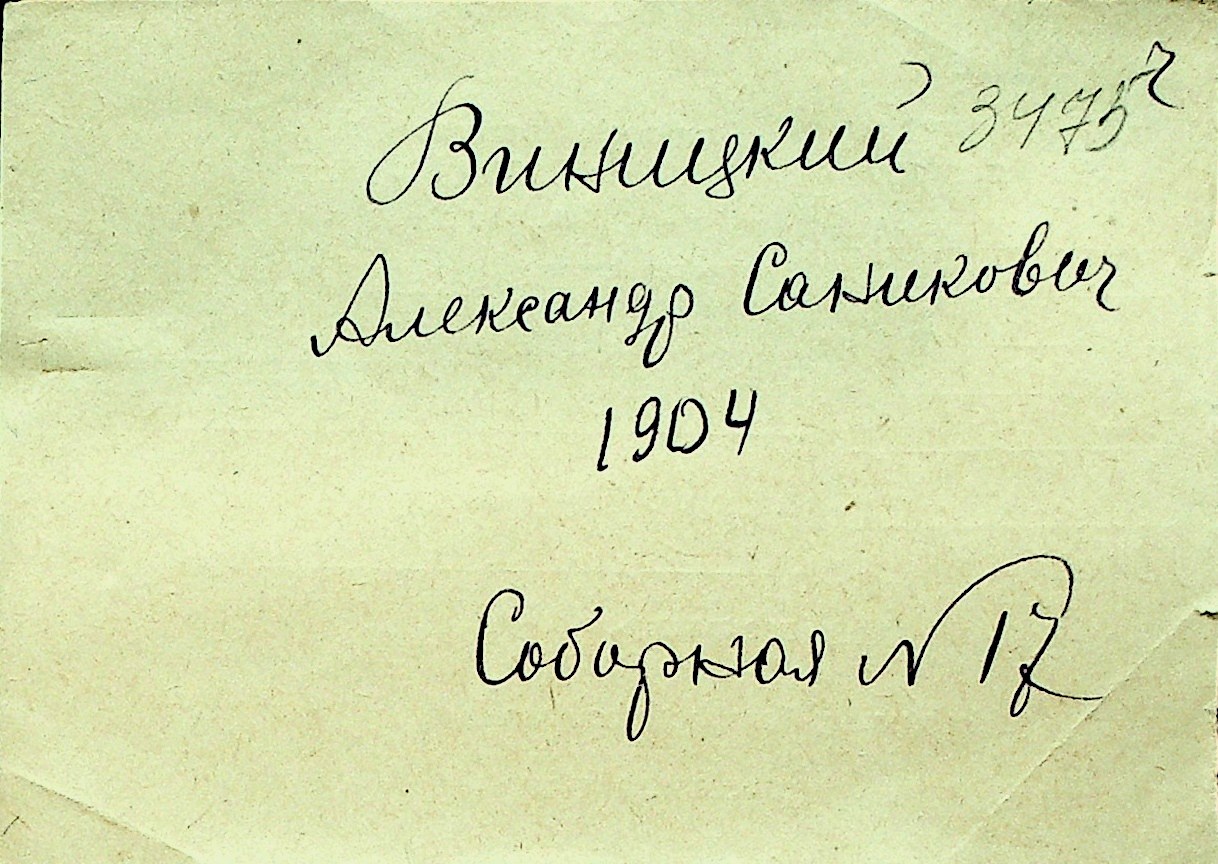 Виницкий 3475 г
Александр Саникович
1904
Соборная N 17